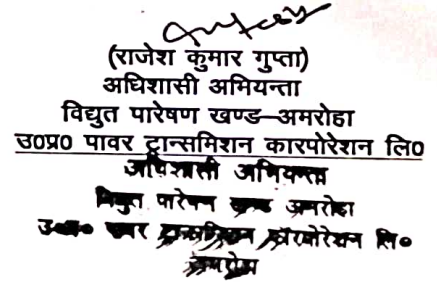 (राजेश कुमार गुप्ता)
अधिशासी अभियन्ता
विद्युत पारेषण खण्ड-अमरोहा
उ०प्र० पावर ट्रान्समिशन कारपोरेशन लि०
अधिशासी अभियन्ता
विद्युत पारेषण खण्ड अमरोहा
उ०प्र० पावर ट्रान्समिशन कॉरपोरेशन लि०
अमरोहा